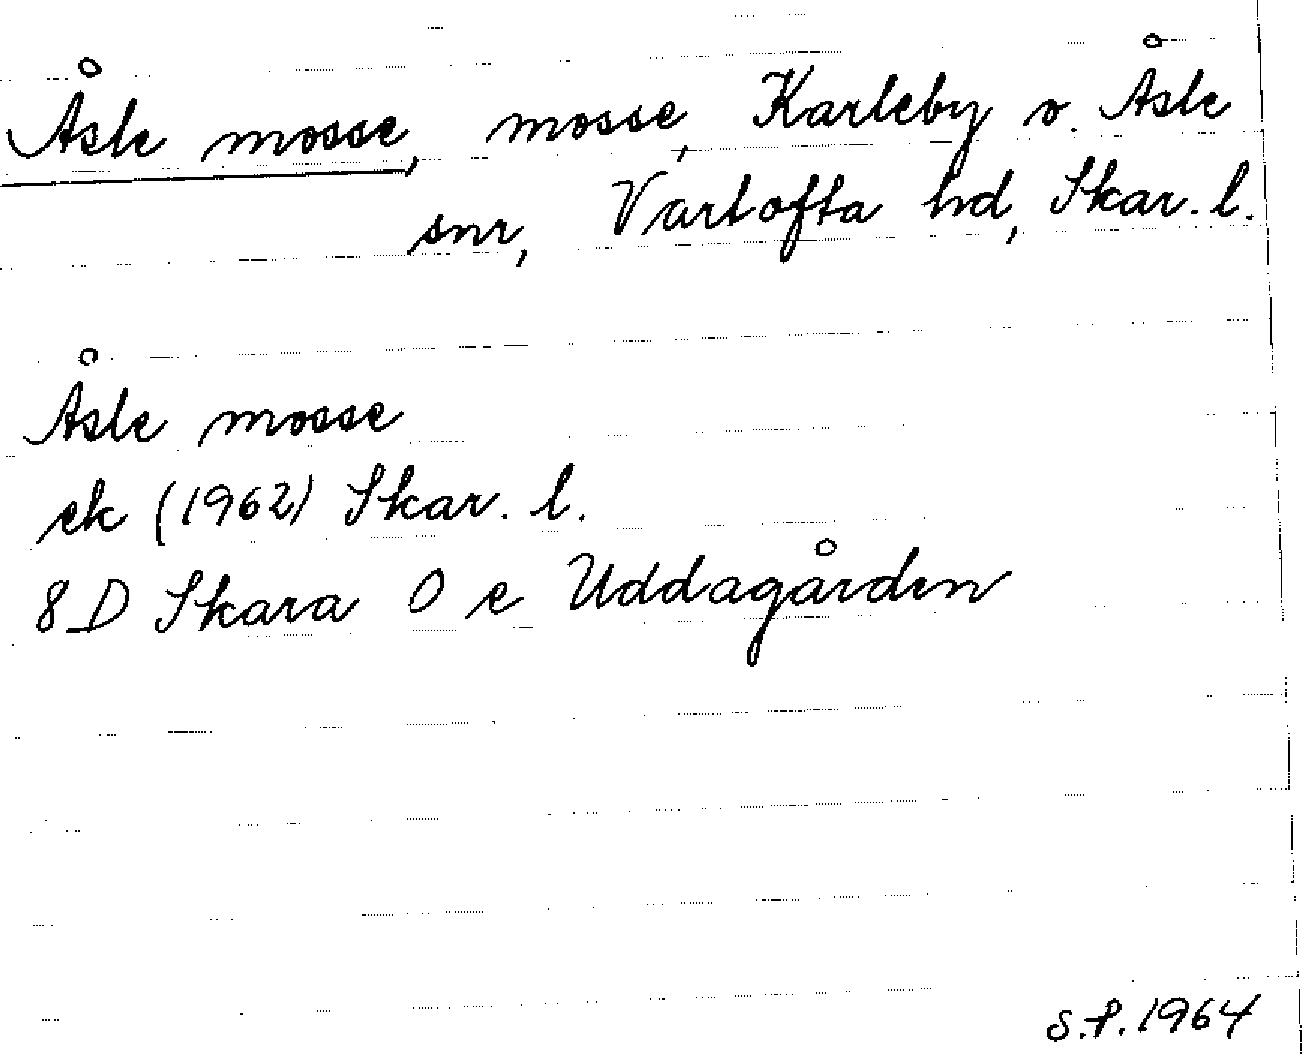 Åsle mosse, mosse, Karleby o. Åsle
snr, Vartofta hd, Skar. l.
Åsle mosse
ek (1962) Skar. l.
8 D Skara 0 e Uddagården
S.P. 1964